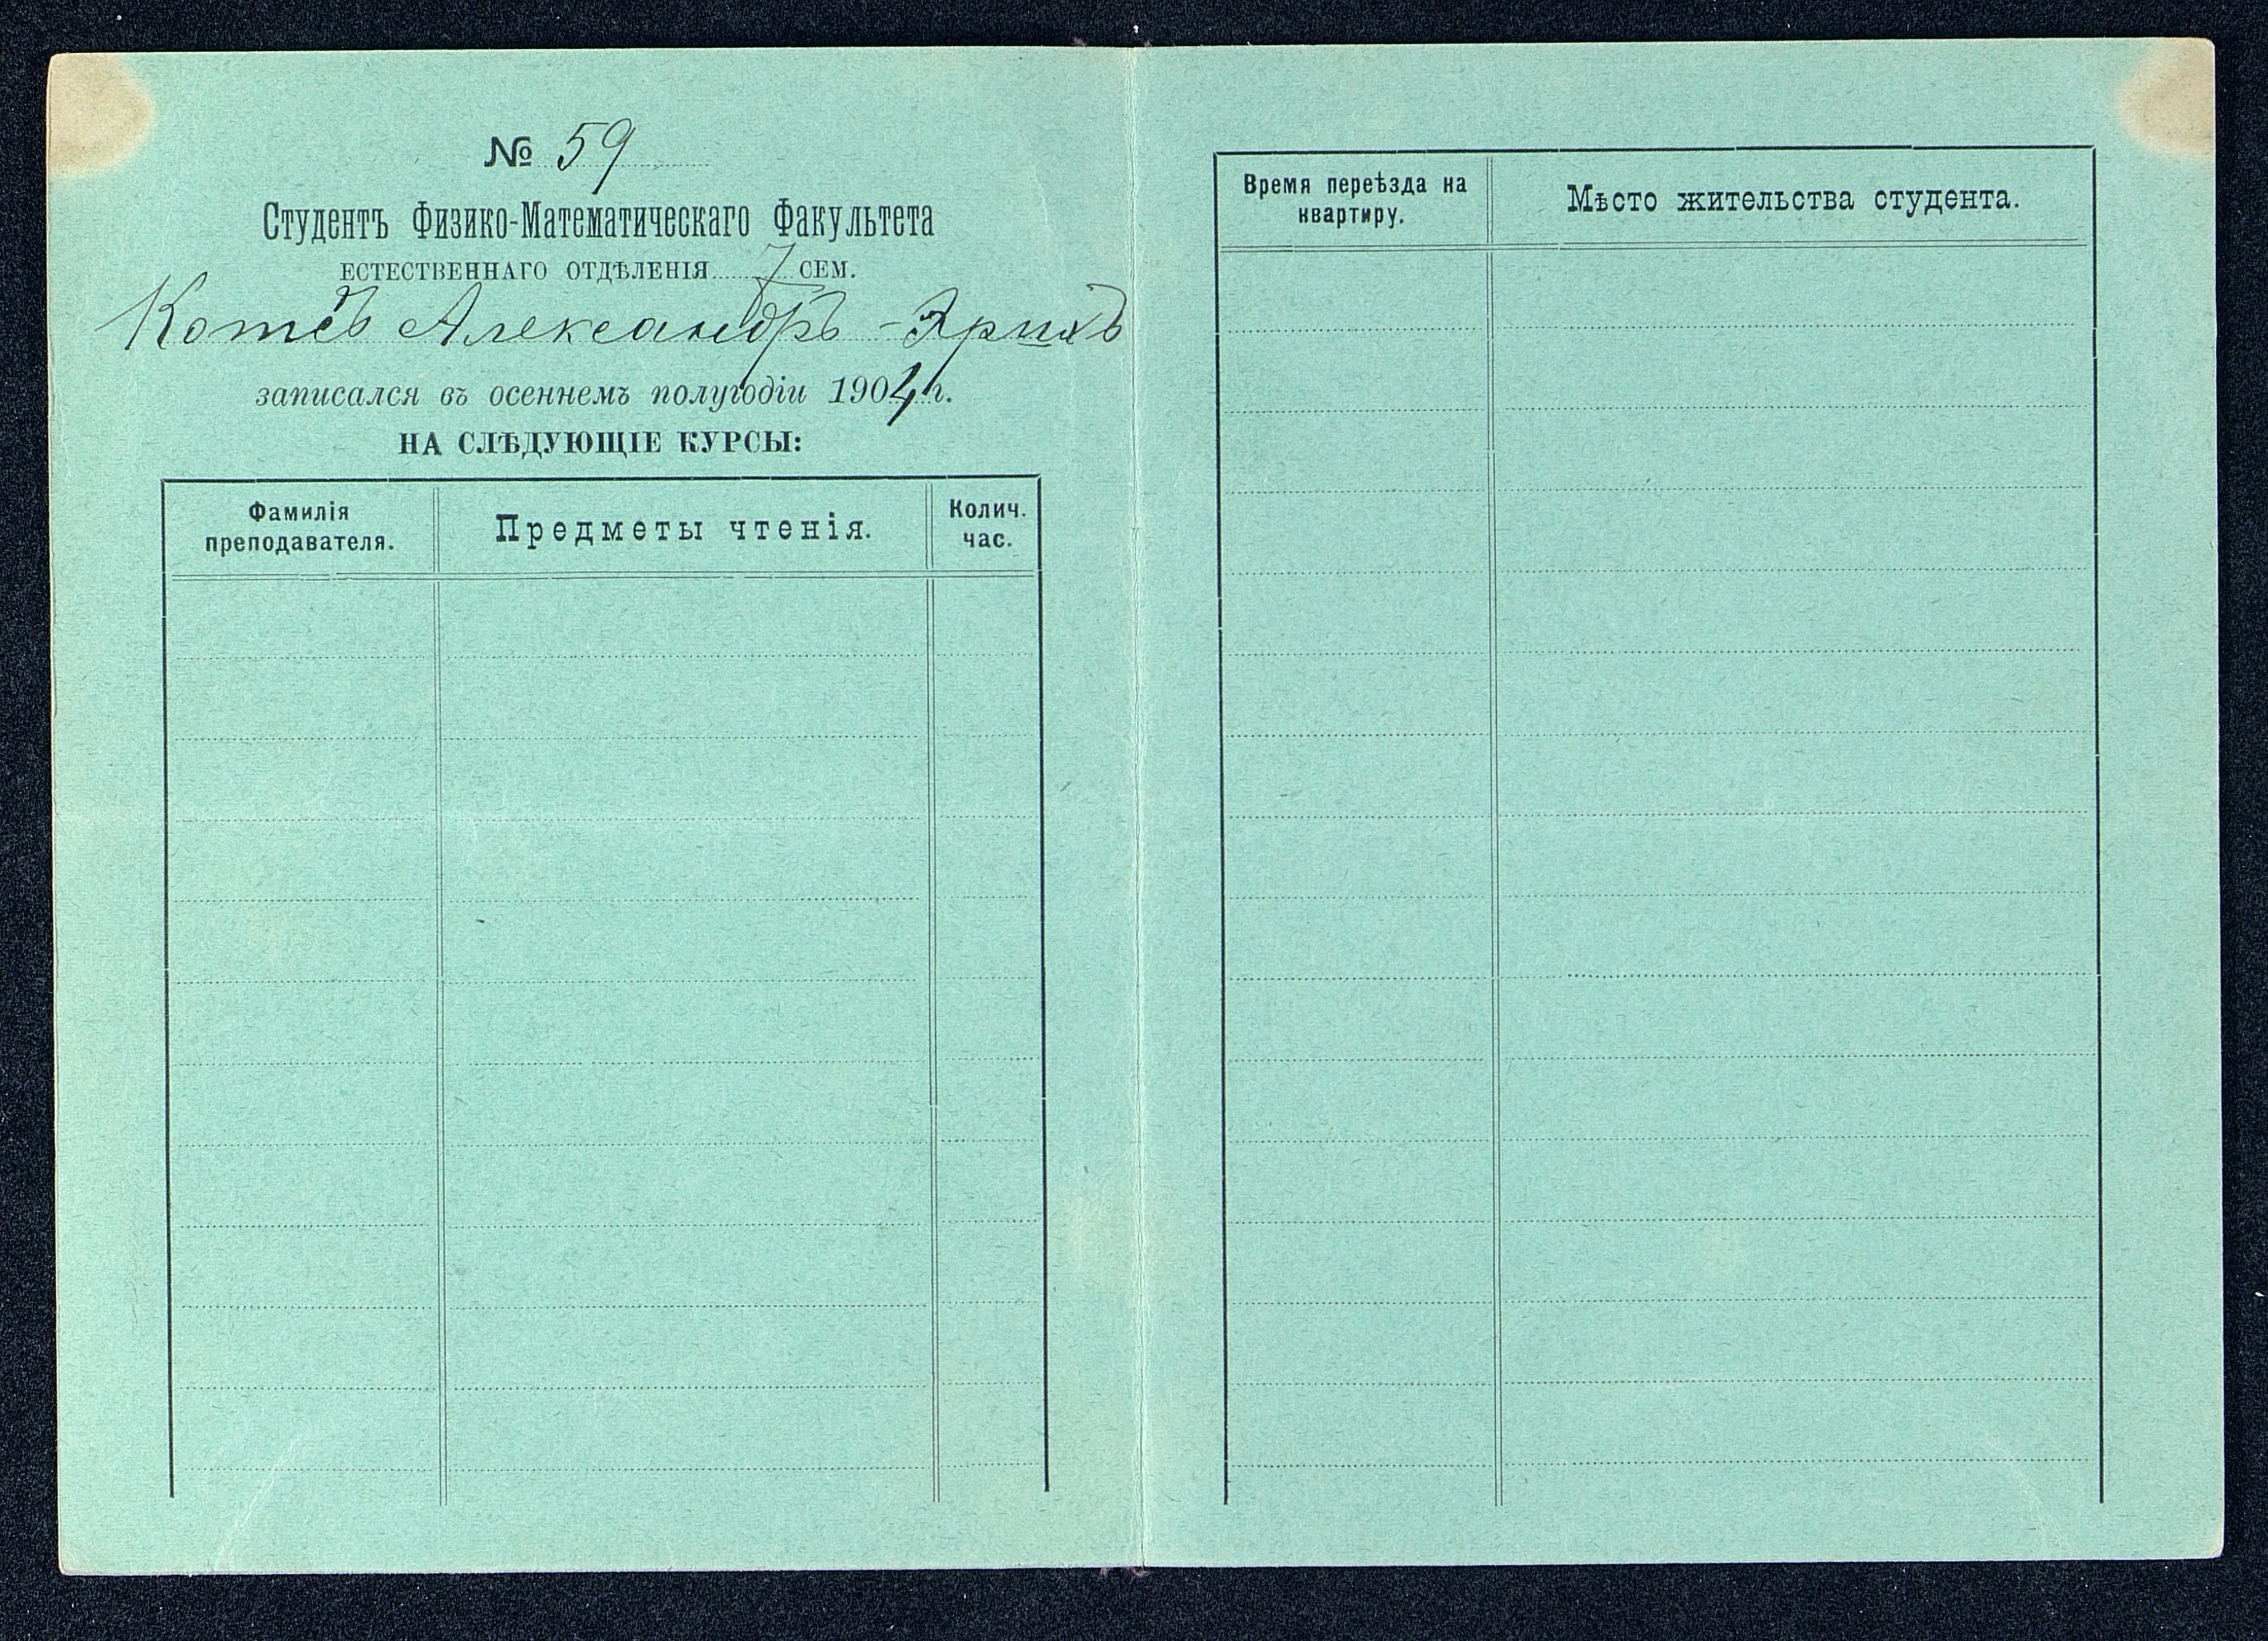 № 59
Студентъ Физико-Математическаго Факультета
ЕСТЕСТВЕННАГО ОТДѢЛЕНІЯ 7 СЕМ.
Котсъ Александръ-Эрихъ
записался въ осеннемъ полугодіи 1904 г.
НА СЛѢДУЮЩІЕ КУРСЫ:
Фамилія
преподавателя.
Предметы чтенія.
Колич.
час.
Время переѣзда на
квартиру.
Мѣсто жительства студента.